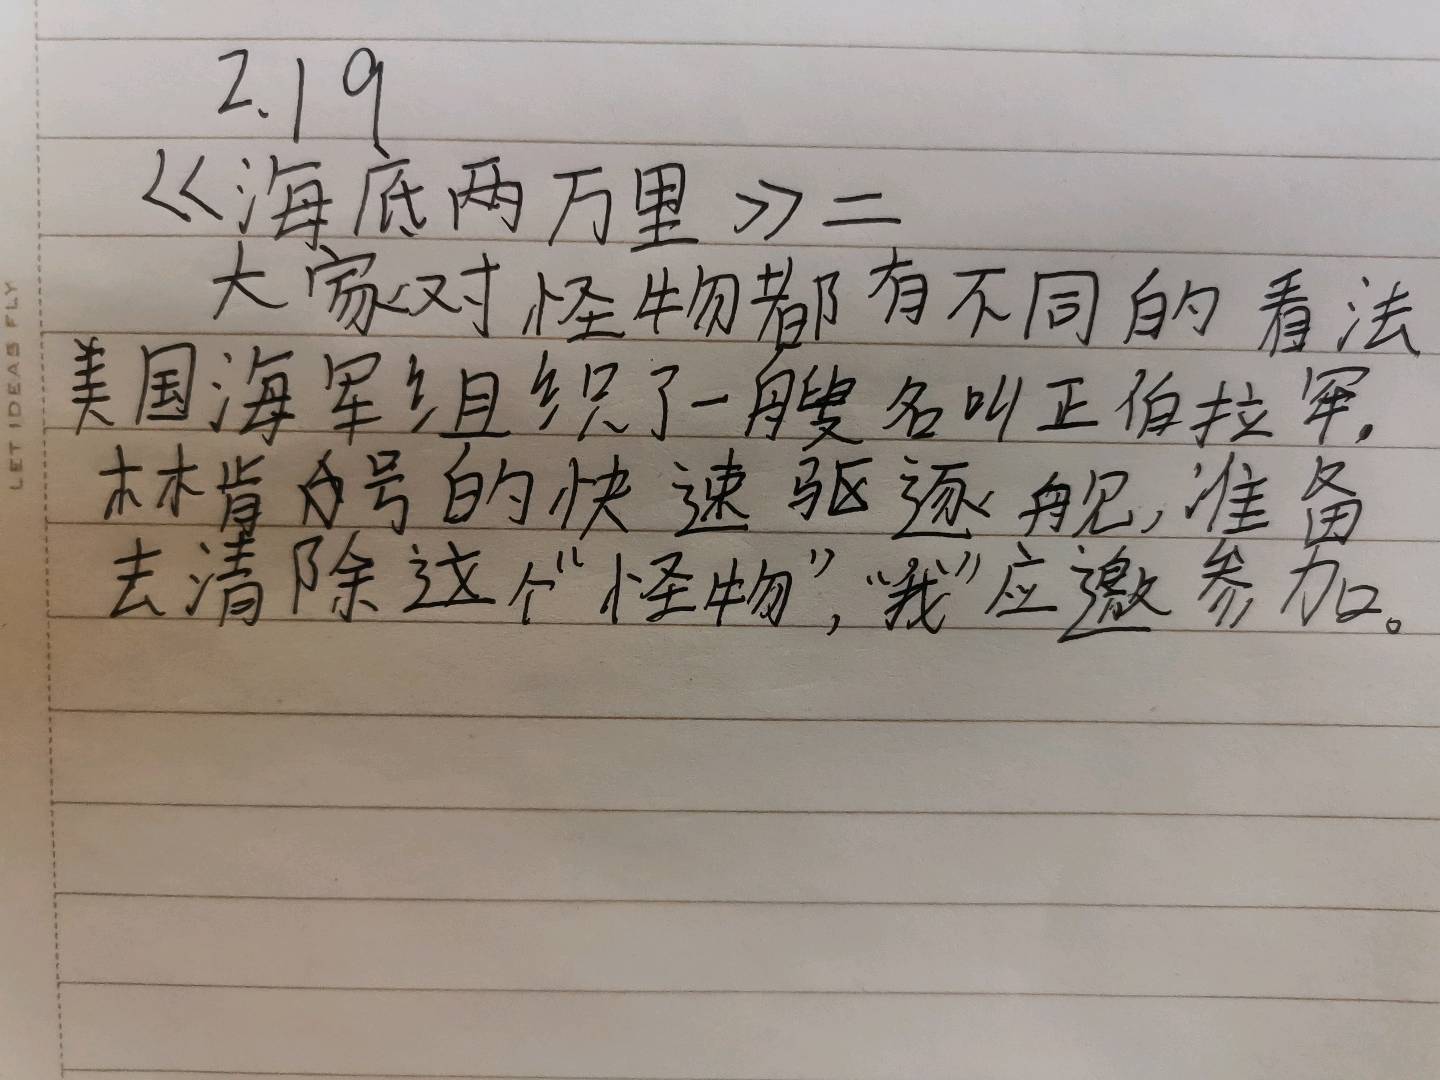 2.19
《海底两万里》二
大家对怪物都有不同的看法
美国海军组织了一艘名叫正伯拉罕.
林肯号的快速驱逐舰,准备
去清除这个“怪物”,“我”应邀参加。
LET IDEAS FLY